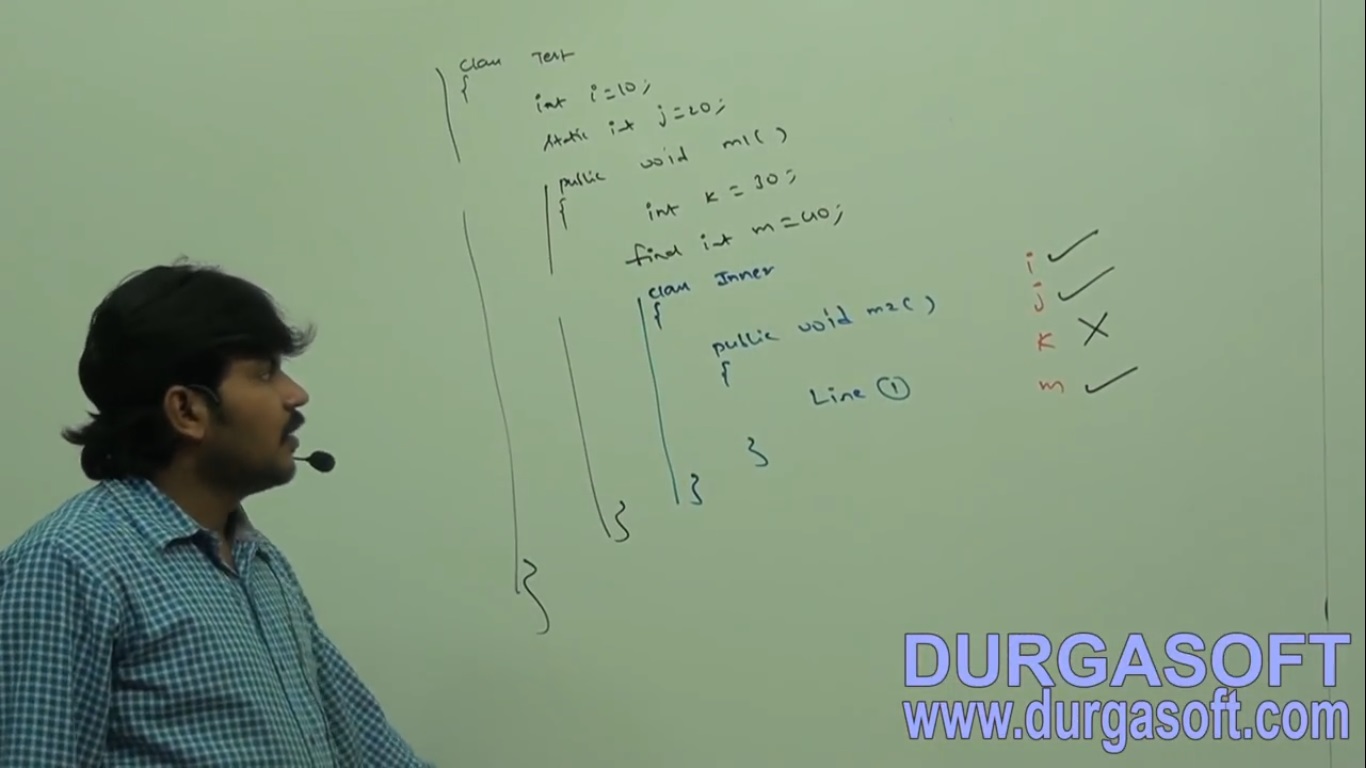 class Test
{
int i=10;
static int j=20;
public void m1( )
{
int k = 30;
final int m=40;
class Inner
{
public void m2( )
{
Line ①
}
}
}
}
i ✓
j ✓
k X
m ✓
DURGASOFT
www.durgasoft.com